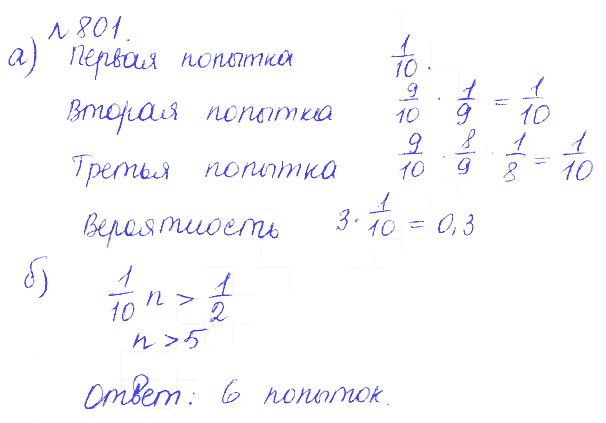 № 801.
а) Первая попытка 1/10.
Вторая попытка 9/10 · 1/9 = 1/10
Третья попытка 9/10 · 8/9 · 1/8 = 1/10
Вероятность 3 · 1/10 = 0,3
б) 1/10 n > 1/2
n > 5
Ответ: 6 попыток.